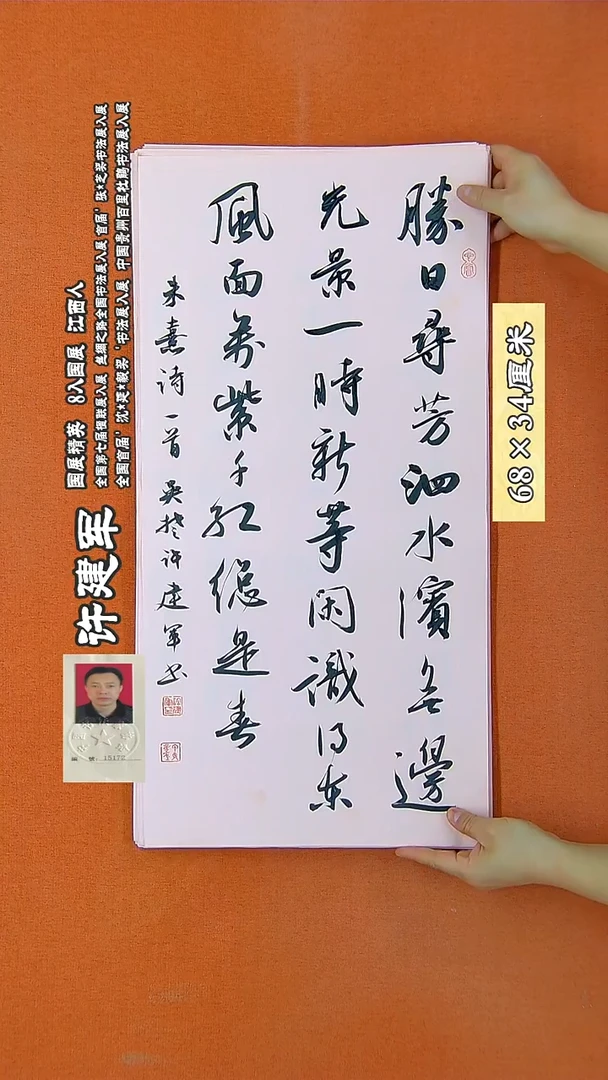 勝日尋芳泗水濱無邊
光景一時新等闲識得東
風面萬紫千紅總是春
朱熹诗一首 吴楚许建軍书
68×34厘米
许建军
国展精英 8入国展 江西人
全国第七届楹联展入展 丝绸之路全国书法展入展 首届'张*芝奖书法展入展
全国首届'沈*延*毅奖'书法展入展 中国贵州百里杜鹃书法展入展
编 號：15172